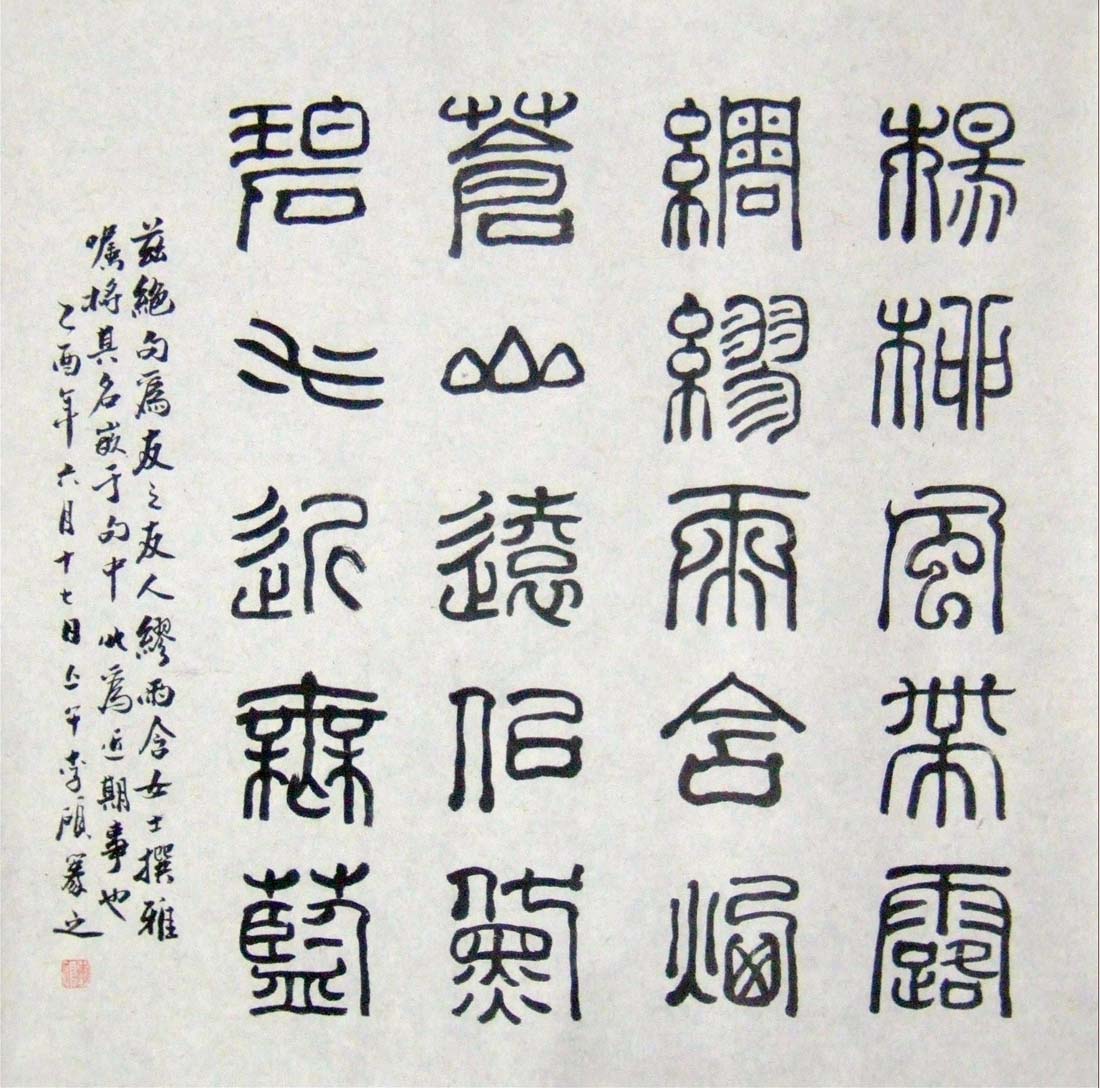 楊柳風帶露
綢繆雨含煙
蒼山遠似黛
碧水近無藍
茲絕句爲友之友人繆雨含女士撰雅
囑將其名嵌于句中此爲近期事也
乙酉年六月十七日上午李碩篆之